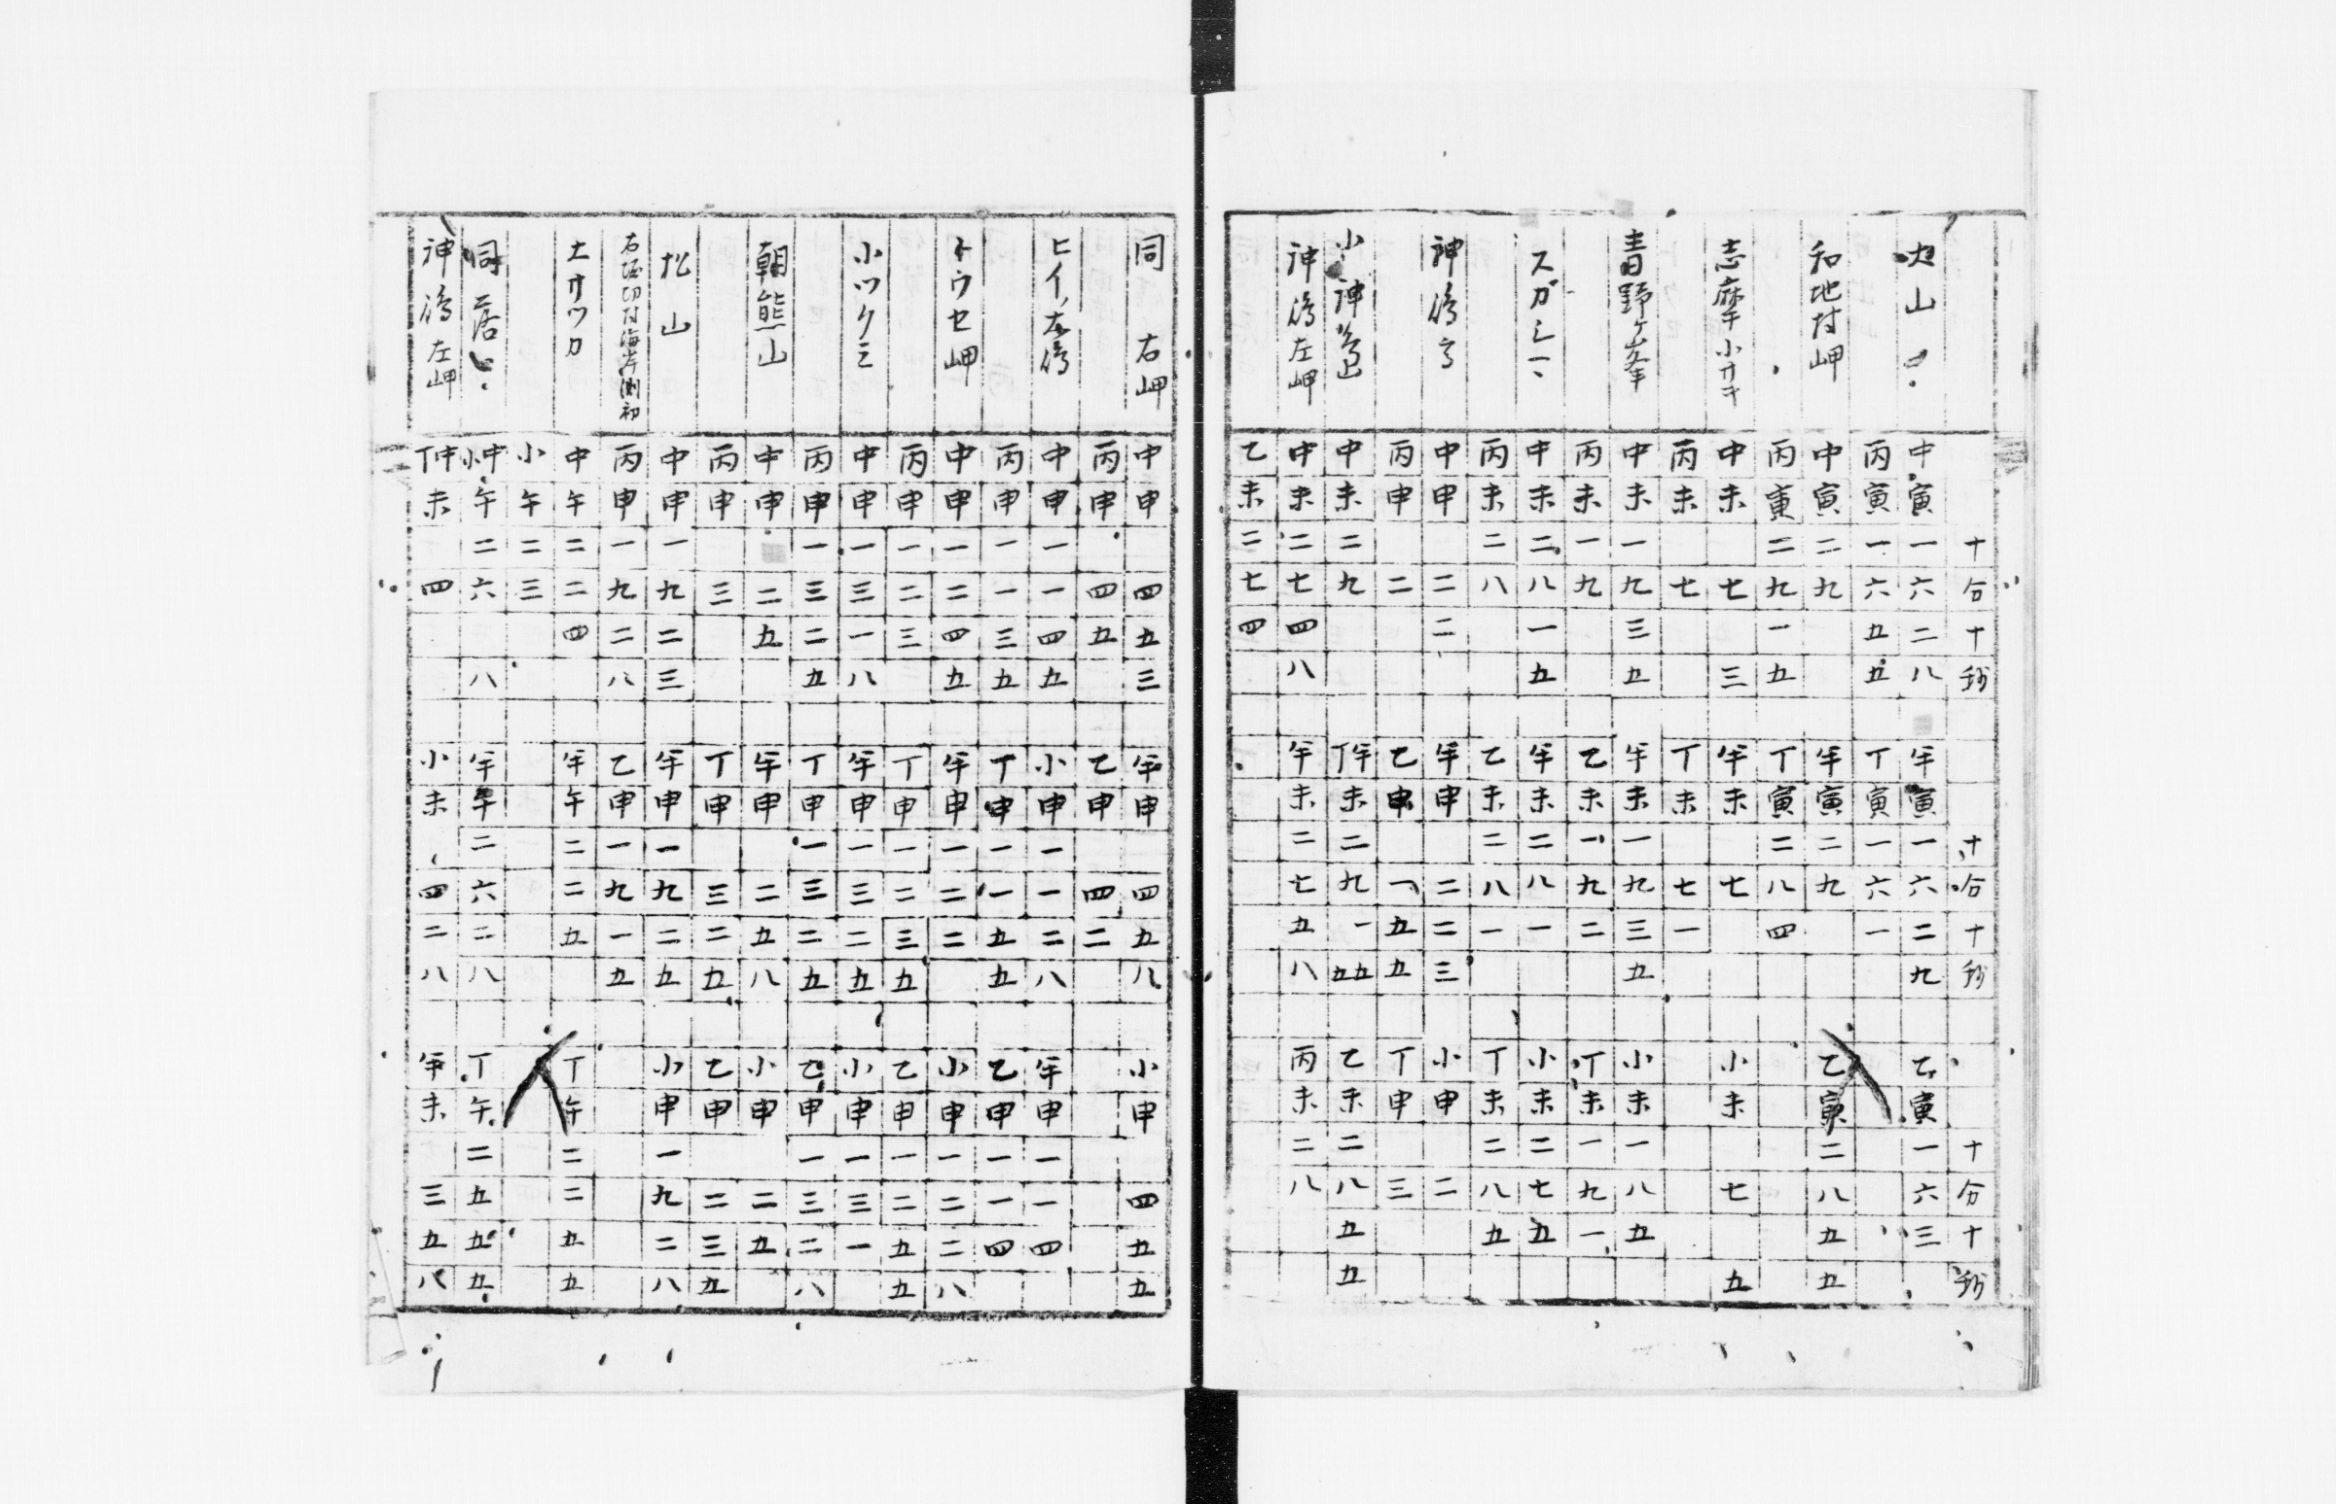 十分十秒 十分十秒 十分十秒
大山 中寅一六二八 半寅一六二九 乙寅一六三
丙寅一六五五 丁寅一六一
和地村岬 中寅二九 半寅二九 乙寅二八五五
丙寅二九一五 丁寅二八四
志摩 中未七三 半未七 小未七五
丙未七 丁未七一
青野ヶ峯 中未一九三五 半未一九三五 小未一八五
丙未一九 乙未一九二 丁未一九一
スガシマ 中未二八一五 半未二八一 小未二七五
丙未二八 乙未二八一 丁未二八五
神嶋 中申二二 半申二二三 小申二
丙申二 乙申一五五 丁申三
小神嶌 中未二九 丁半未二九一五五 乙未二八五五
神嶋左岬 中未二七四八 半未二七五八 丙未二八
乙未二七四
同 右岬 中申四五三 半申四五八 小申四五五
丙申四五 乙申四二
ヒイ嶋 中申一一四五 小申一一二八 半申一一四
丙申一一三五 丁申一一五五 乙申一一四
トウセ岬 中申一二四五 半申一二二 小申一二二八
丙申一二三 丁申一二三五 乙申一二五五
小ツクミ 中申一三一八 半申一三二五 小申一三一
丙申一三二五 丁申一三二五 乙申一三二八
朝熊山 中申二五 半申二五八 小申二五
丙申三 丁申三二五 乙申二三五
松山 中申一九二三 半申一九二五 小申一九二八
右堀切村海岸測初 丙申一九二八 乙申一九一五
大オツカ 中午二二四 半午二二五 丁午二二五五
小午二三
同 居 中小午二六八 半午二六二八 丁午二五五五
神嶋左岬 中丁未四 小未四二八 半未三五八